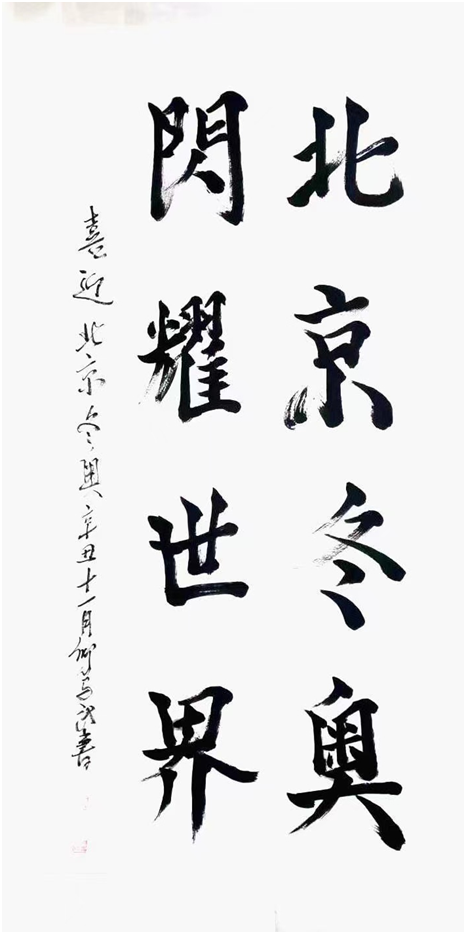 北京冬奥
閃耀世界
喜迎北京冬奥辛丑十一月